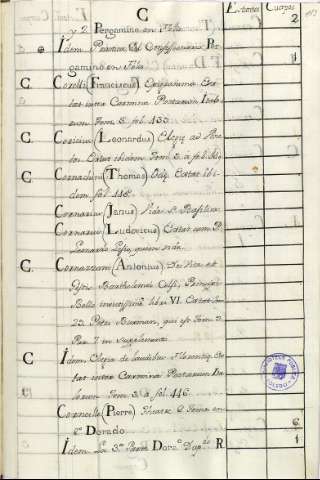 C
Estantes Cuerpos
y 2 Pergamino en Folio 2
Idem Practica Confessariorum Per
gamino en Folio 1
C. Corelli (Franciscus) Epigramma Ex
tat inter Carmina Poetarum Italo
rum Tom. 3. fol. 433
C. (Leonardus) Elegiæ
Extat ibidem Tom. 3. a fol.
C. (Thomas) Odæ Extat ibi
dem fol. 448.
Cornarius (Janus) Vide S. Basilius
Cornarius (Ludovicus) Extat cum P.
Leonardo Lesio, quem vide.
C. Cornazzani (Antonius) De Vita et
Gestis Bartholomei Principis
Bello invictissimi libri VI. Extat Tom.
25. Petri Burman, qui est Tom. 9.
Par. 7 in Supplementis
C Idem, Elegia de laudibus Florentiæ Ex
tat inter Carmina Poetarum Ita
lorum Tom. 3. a fol. 446.
Corneille (Pierre) Theatre 6 Tomos en
8º Dorado 6
Idem La 3ª Parte Doro Dupdo R 1